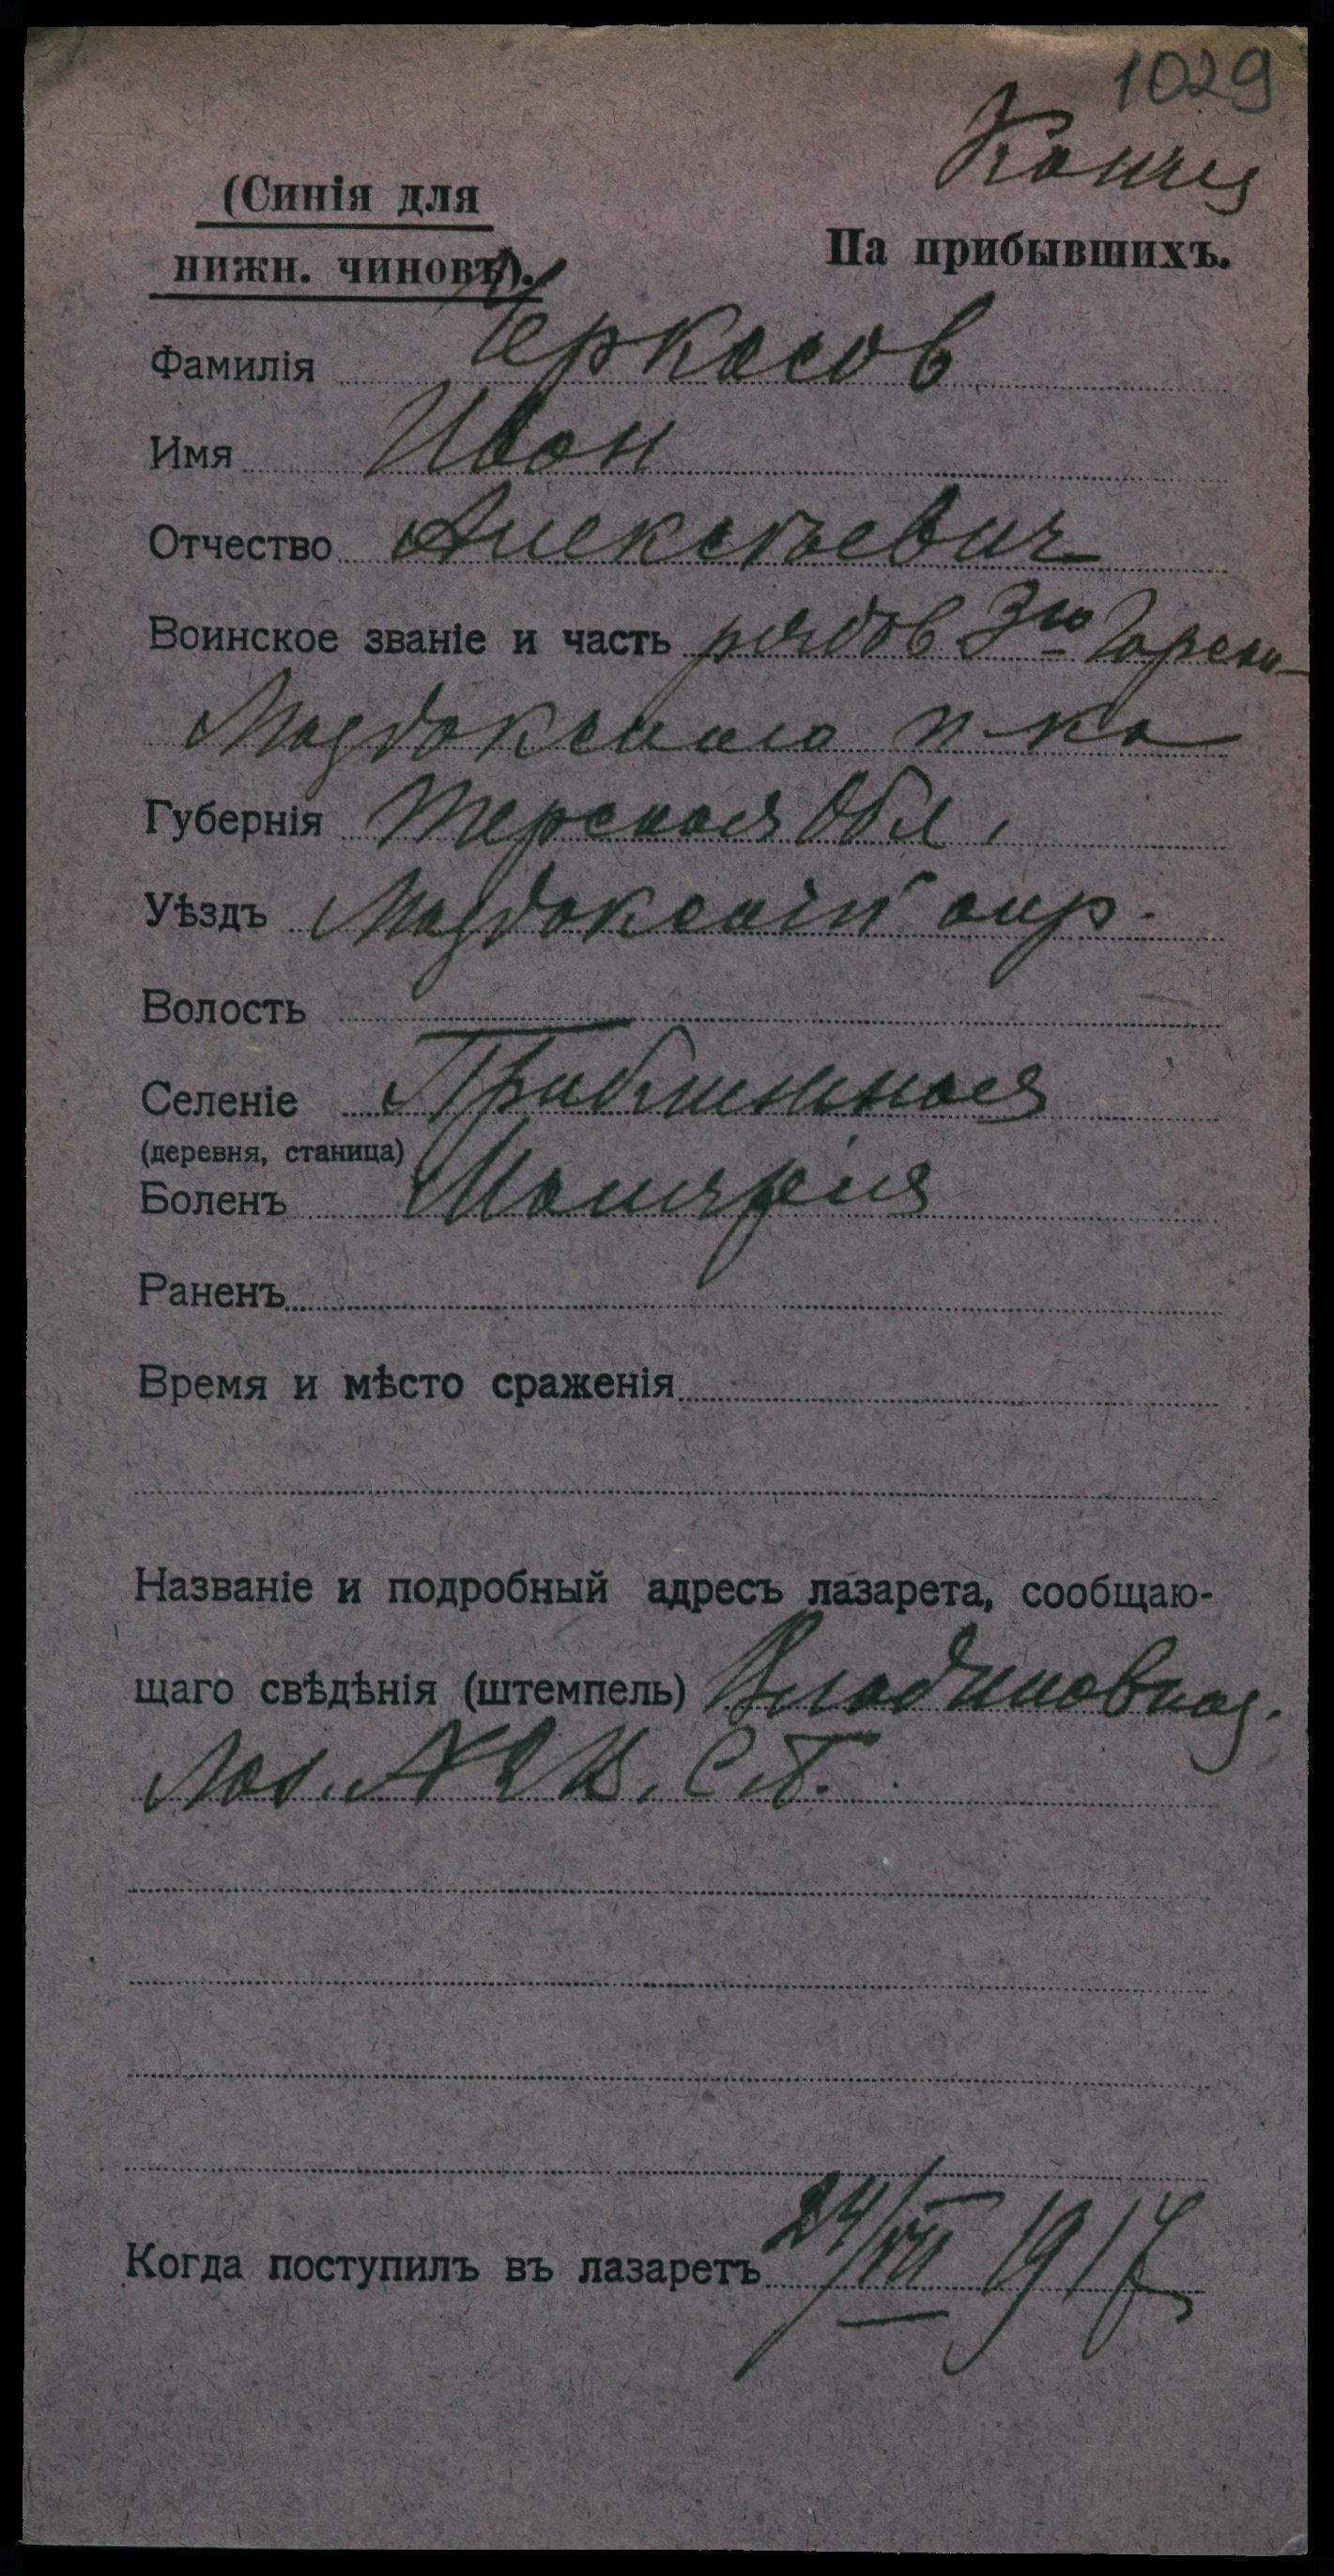 1029
(Синія для
На прибывшихъ.
нижн. чиновъ).
Фамилія Черкасов
Имя Иван
Отчество Алексѣевич
Воинское званіе и часть рядов 3го Горско-
Моздокского п-ка
Губернія Терская Обл.
Уѣздъ Моздокскій окр.
Волость
Селеніе Приближная
(деревня, станица)
Боленъ Малярія
Раненъ
Время и мѣсто сраженія
Названіе и подробный адресъ лазарета, сообщаю-
щаго свѣдѣнія (штемпель) Владикавказ.
Лаз. № 2 В. С. Г.
Когда поступилъ въ лазаретъ 24/VII 1917